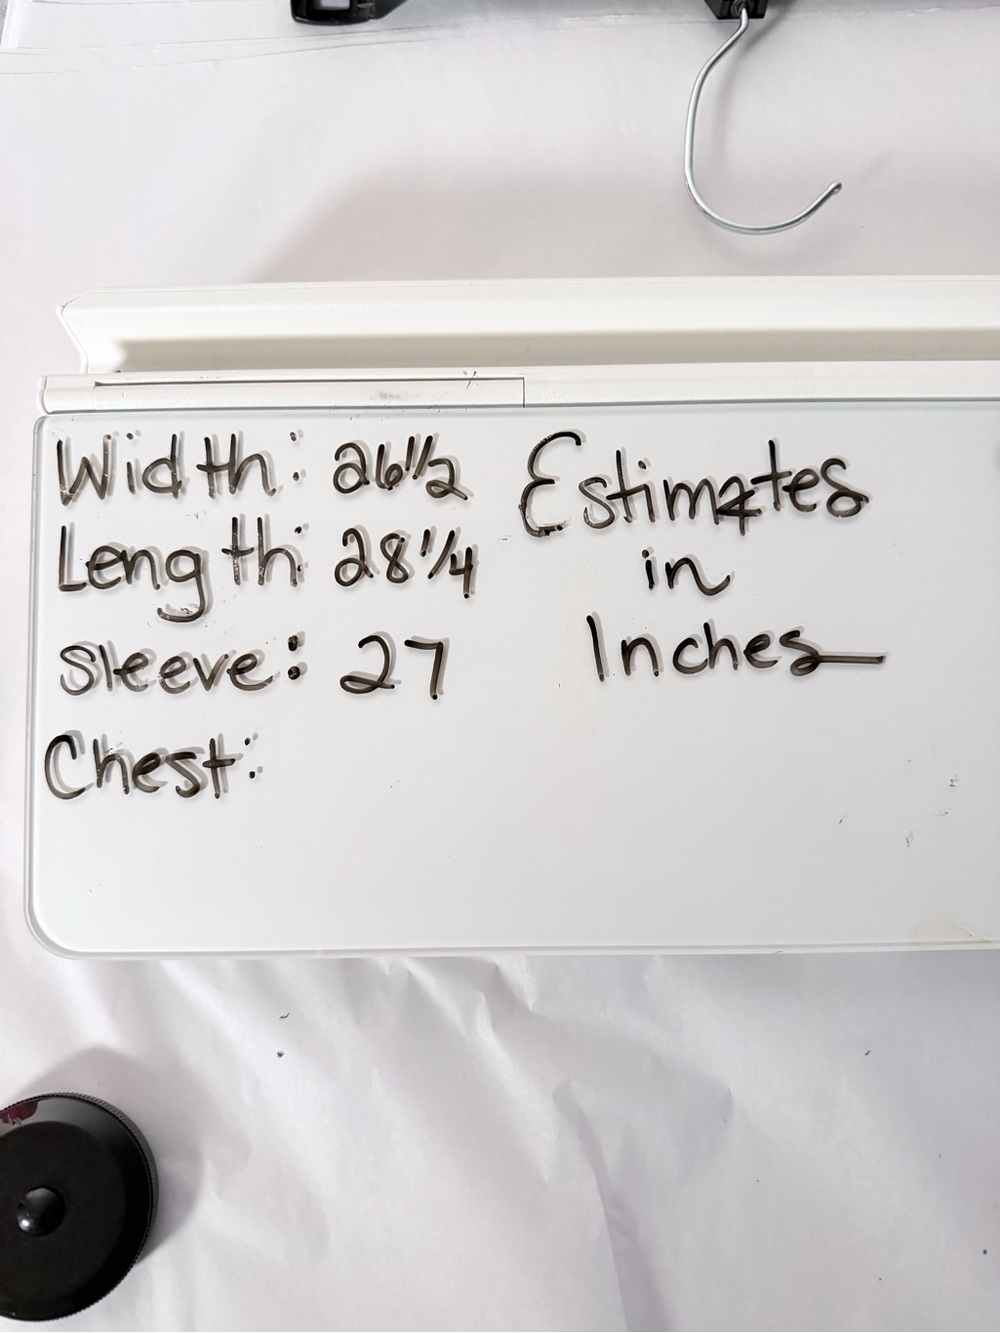 Width: 26 1/2
Length: 28 1/4
Sleeve: 27
Chest:
Estimates
in
Inches